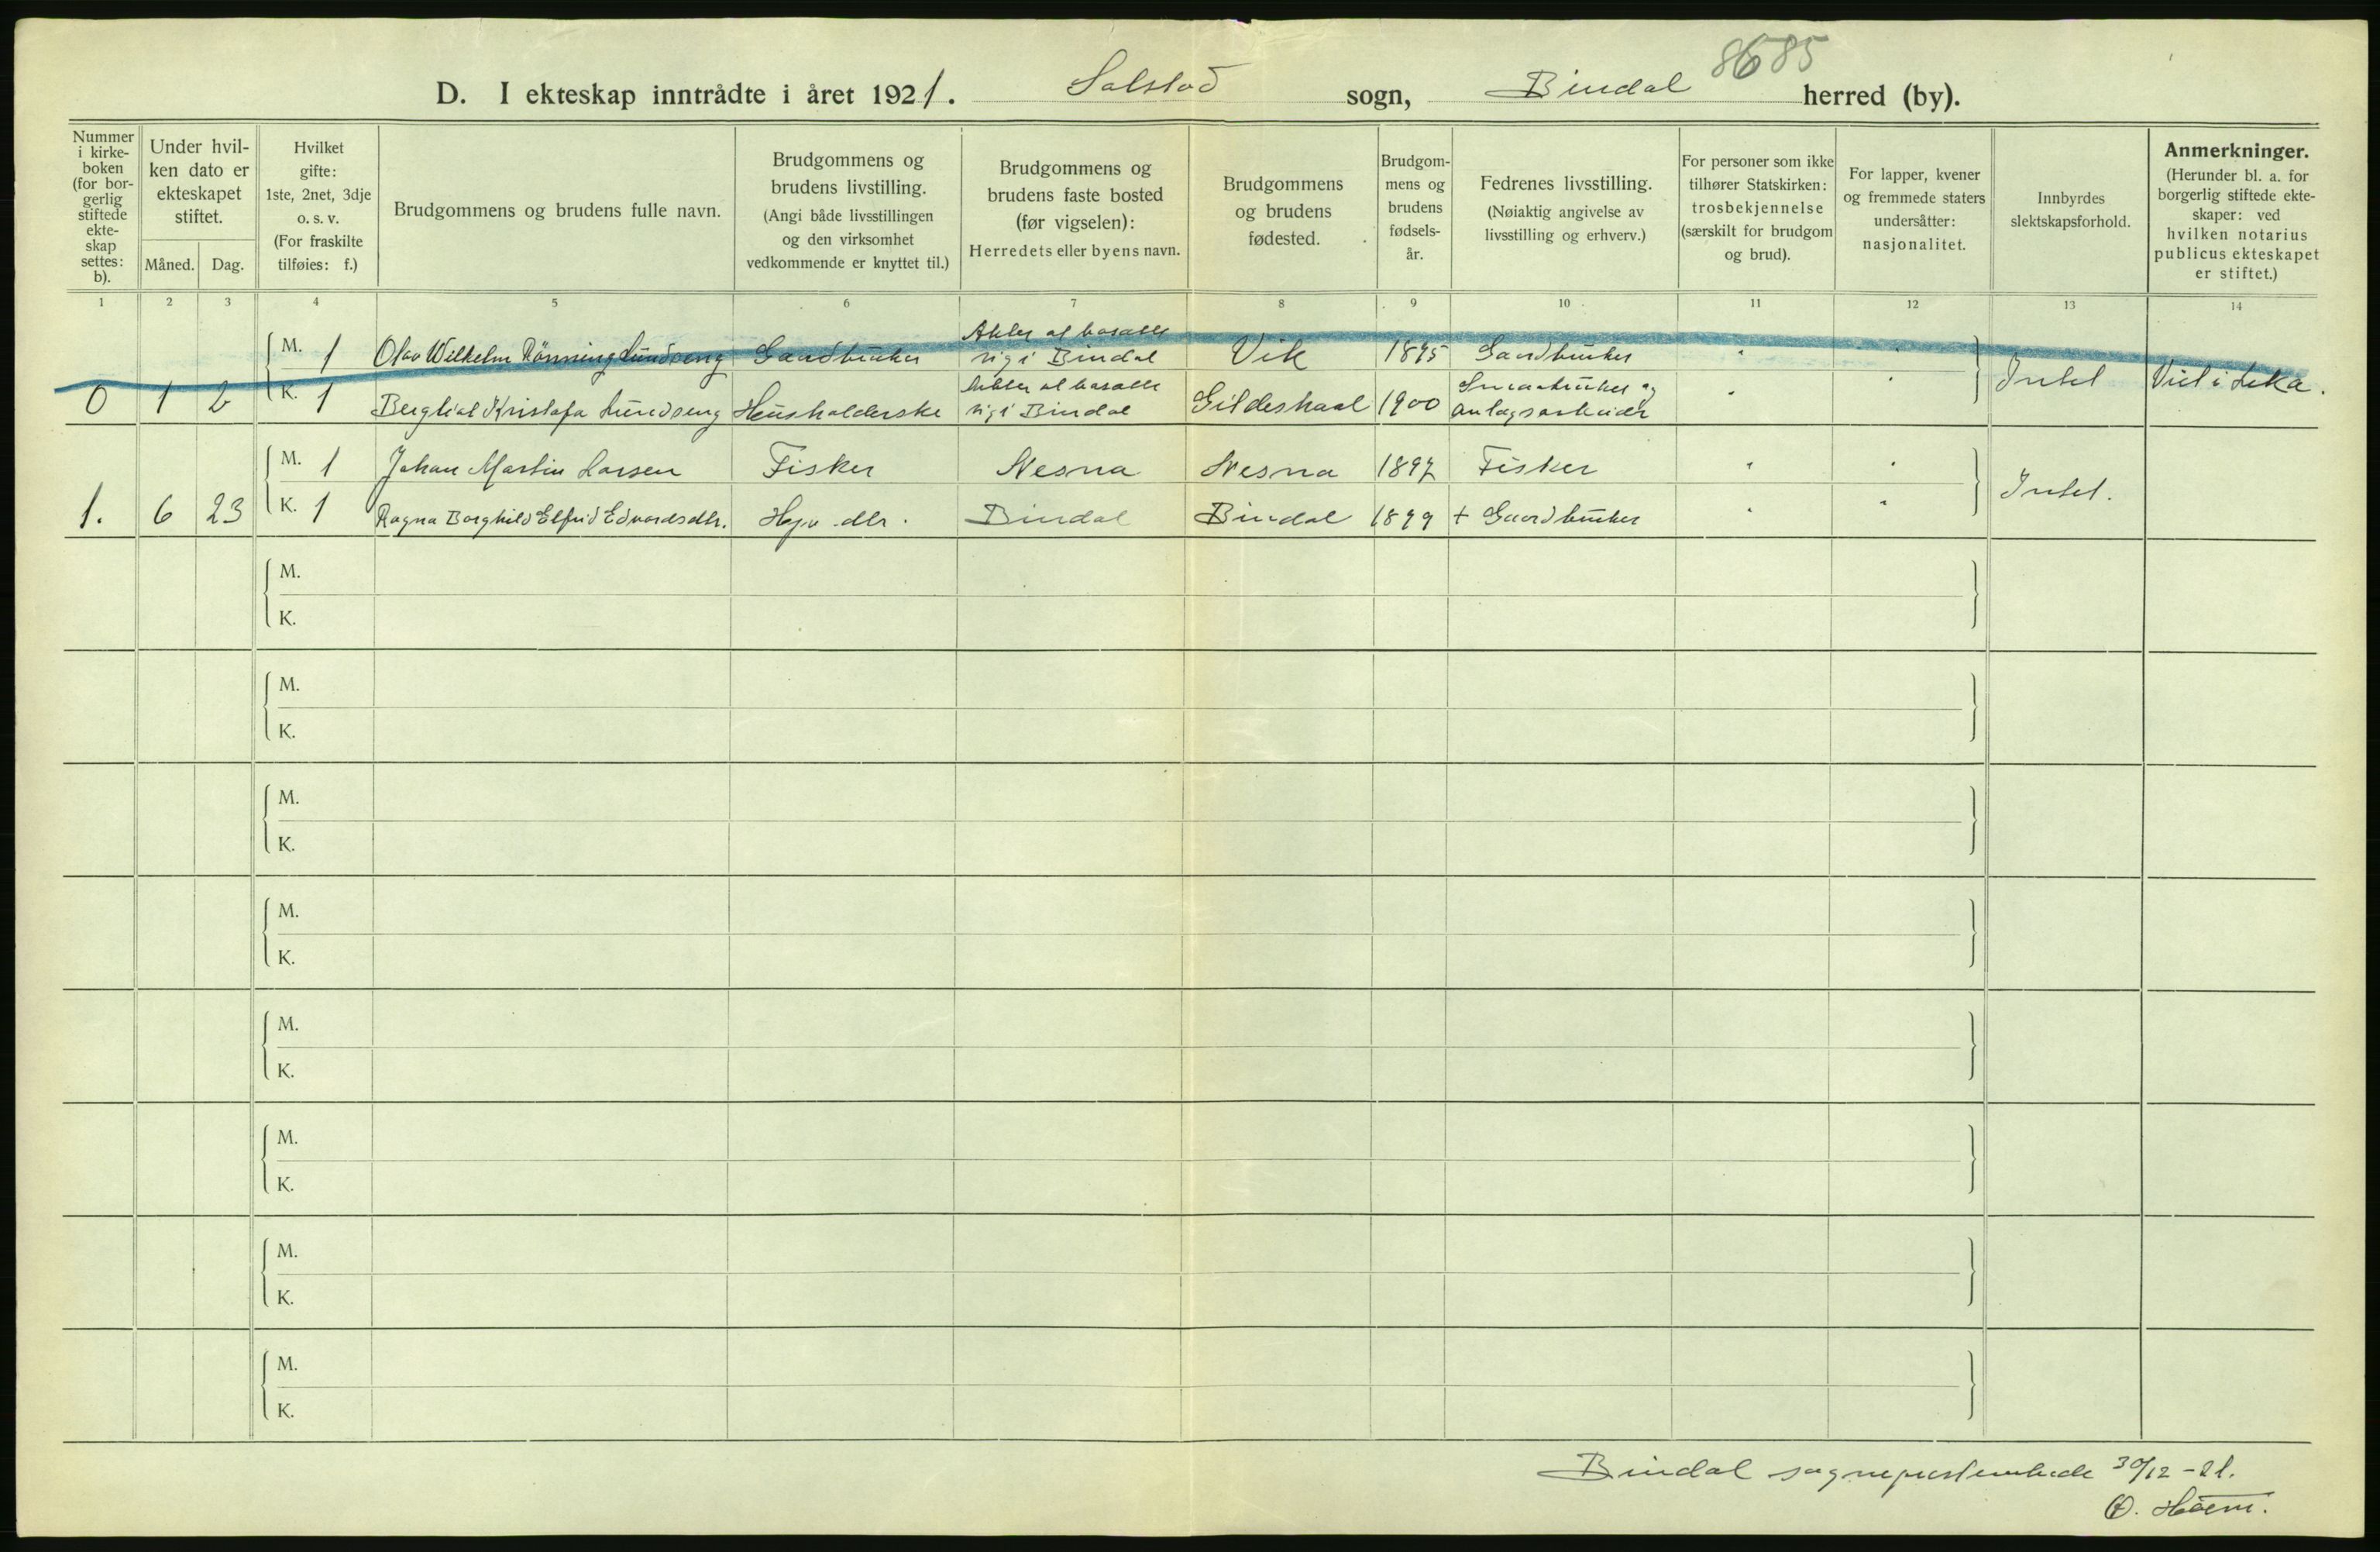 8685
D. I ekteskap inntrådte i året 1921. Solstad sogn, Bindal herred (by).
Nummer i kirke- boken (for bor- gerlig stiftede ekte- skap settes: b).
Under hvil- ken dato er ekteskapet stiftet.
Måned. Dag.
Hvilket gifte: 1ste, 2net, 3dje o. s. v. (For fraskilte tilføies: f.)
Brudgommens og brudens fulle navn.
Brudgommens og brudens livstilling. (Angi både livsstillingen og den virksomhet vedkommende er knyttet til.)
Brudgommens og brudens faste bosted (før vigselen): Herredets eller byens navn.
Brudgommens og brudens fødested.
Brudgom- mens og brudens fødsels- år.
Fedrenes livsstilling. (Nøiaktig angivelse av livsstilling og erhverv.)
For personer som ikke tilhører Statskirken: trosbekjennelse (særskilt for brudgom og brud).
For lapper, kvener og fremmede staters undersåtter: nasjonalitet.
Innbyrdes slektskapsforhold.
Anmerkninger. (Herunder bl. a. for borgerlig stiftede ekte- skaper: ved hvilken notarius publicus ekteskapet er stiftet.)
1 2 3 4 5 6 7 8 9 10 11 12 13 14
M. 1 Olav Wilhelm Rönning Lundseng Gaardbruker Akter at bosætte sig i Bindal Vik 1895 Gaardbruker
0 1 2 K. 1 Bergliot Kristofa Lundseng Husholderske Akter at bosætte sig i Bindal Gildeskaal 1900 Smaabruker og anlægsarbeider Intet Viet i Leka.
M. 1 Johan Martin Larsen Fisker Nesna Nesna 1897 Fisker
1. 6 23 K. 1 Ragna Borghild Elfrid Edvardsdtr. Hjv. dtr. Bindal Bindal 1899 + Gaardbruker Intet.
M.
K.
M.
K.
M.
K.
M.
K.
M.
K.
M.
K.
M.
K.
M.
K.
Bindal sogneprestembede 30/12 - 21.
O. Höem.